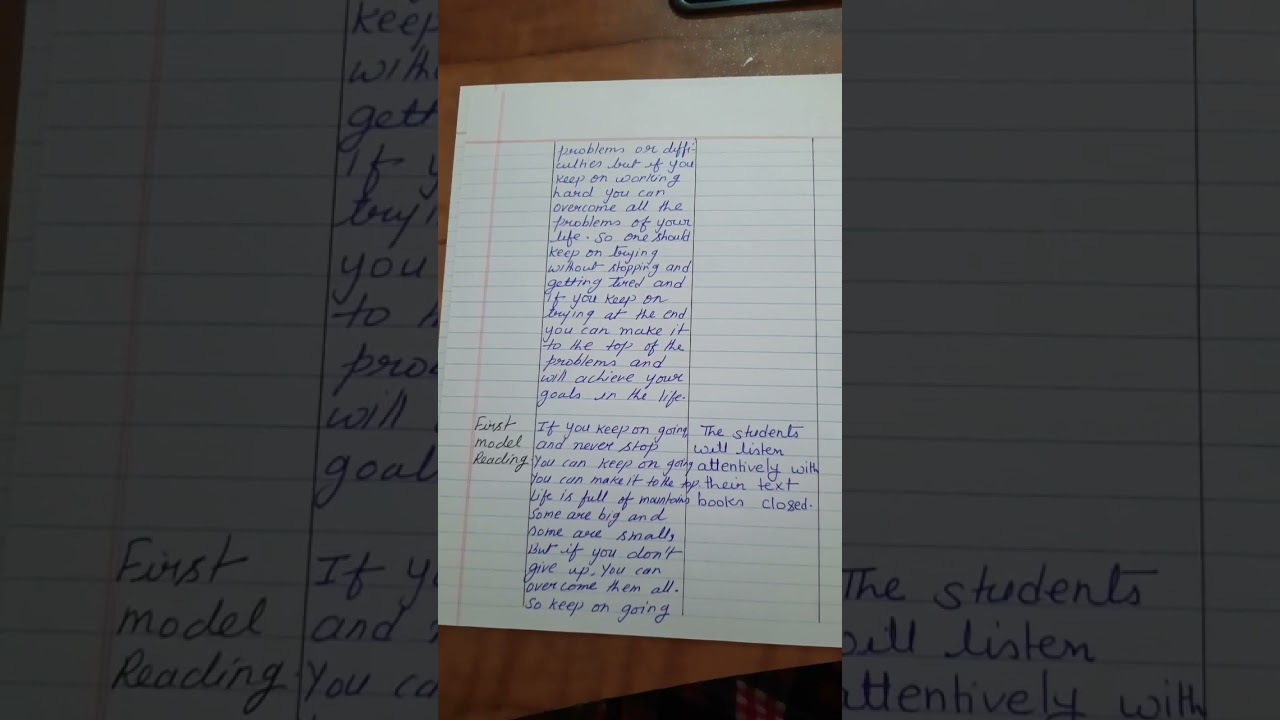 problems or diffi-
culties but if you
keep on working
hard you can
overcome all the
problems of your
life. So one should
keep on trying
without stopping and
getting tired and
if you keep on
trying at the end
you can make it
to the top of the
problems and
will achieve your
goals in the life.
First
model
Reading
If you keep on going
and never stop
You can keep on going
You can make it to the top
Life is full of mountains
Some are big and
some are small,
But if you don't
give up, You can
overcome them all.
So keep on going
The students
will listen
attentively with
their text
books closed.